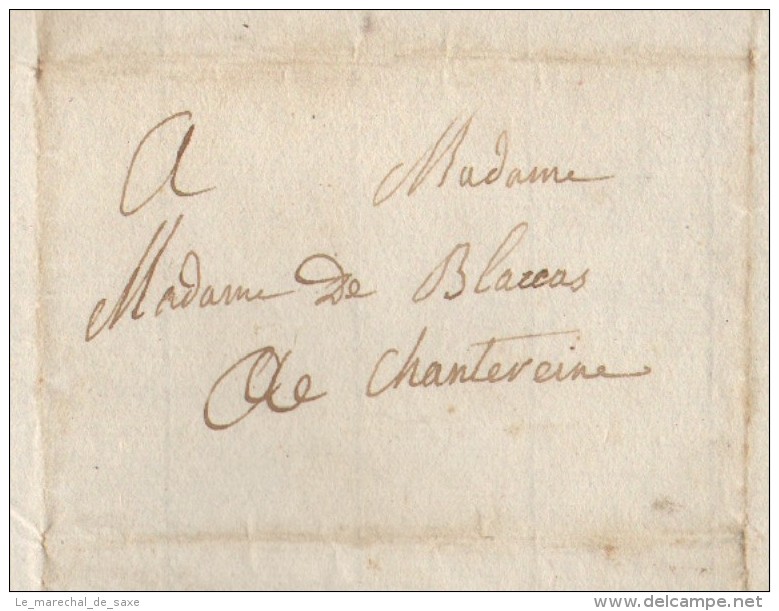 A Madame
Madame De Blaccas
De Chantereine
Le_marechal_de_saxe
delcampe.net